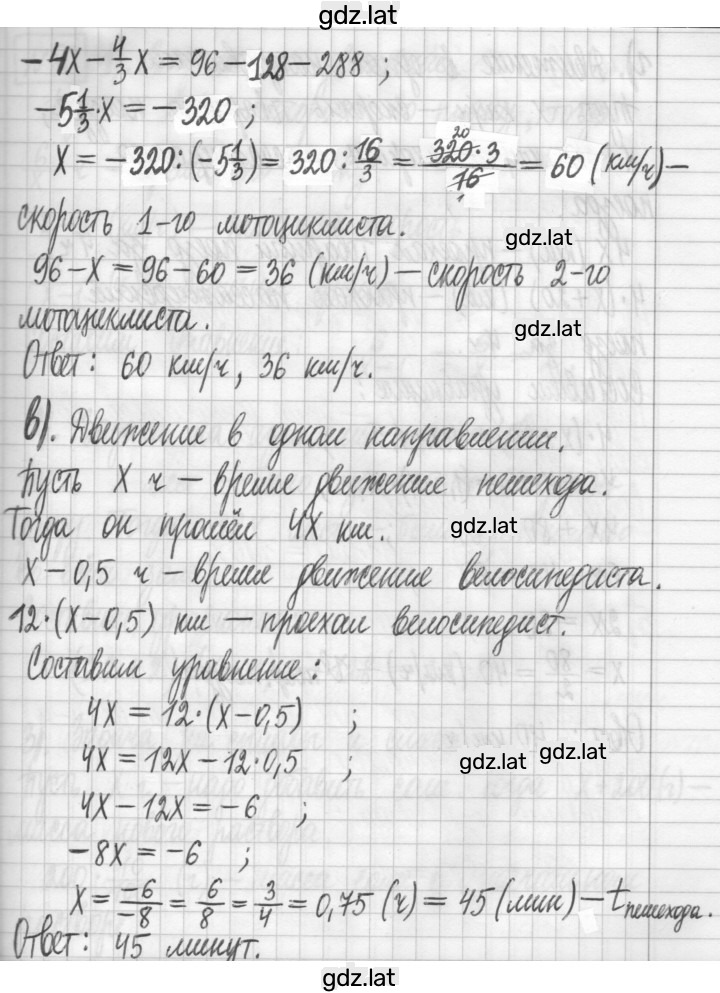 gdz.lat
-4x - 4/3 x = 96 - 128 - 288 ;
-5 1/3 · x = -320 ;
x = -320 : (-5 1/3) = 320 : 16/3 = 320·3/16 = 60 (км/ч) —
20
1
скорость 1-го мотоциклиста.
gdz.lat
96 - x = 96 - 60 = 36 (км/ч) — скорость 2-го
мотоциклиста.
gdz.lat
Ответ: 60 км/ч, 36 км/ч.
в). Движение в одном направлении.
Пусть x ч — время движение пешехода.
Тогда он прошёл 4x км.
gdz.lat
x - 0,5 ч — время движение велосипедиста.
12·(x - 0,5) км — проехал велосипедист.
Составим уравнение:
4x = 12·(x - 0,5) ;
4x = 12x - 12·0,5 ;
gdz.lat gdz.lat
4x - 12x = -6 ;
-8x = -6 ;
x = -6/-8 = 6/8 = 3/4 = 0,75 (ч) = 45 (мин) — t пешехода.
Ответ: 45 минут.
gdz.lat